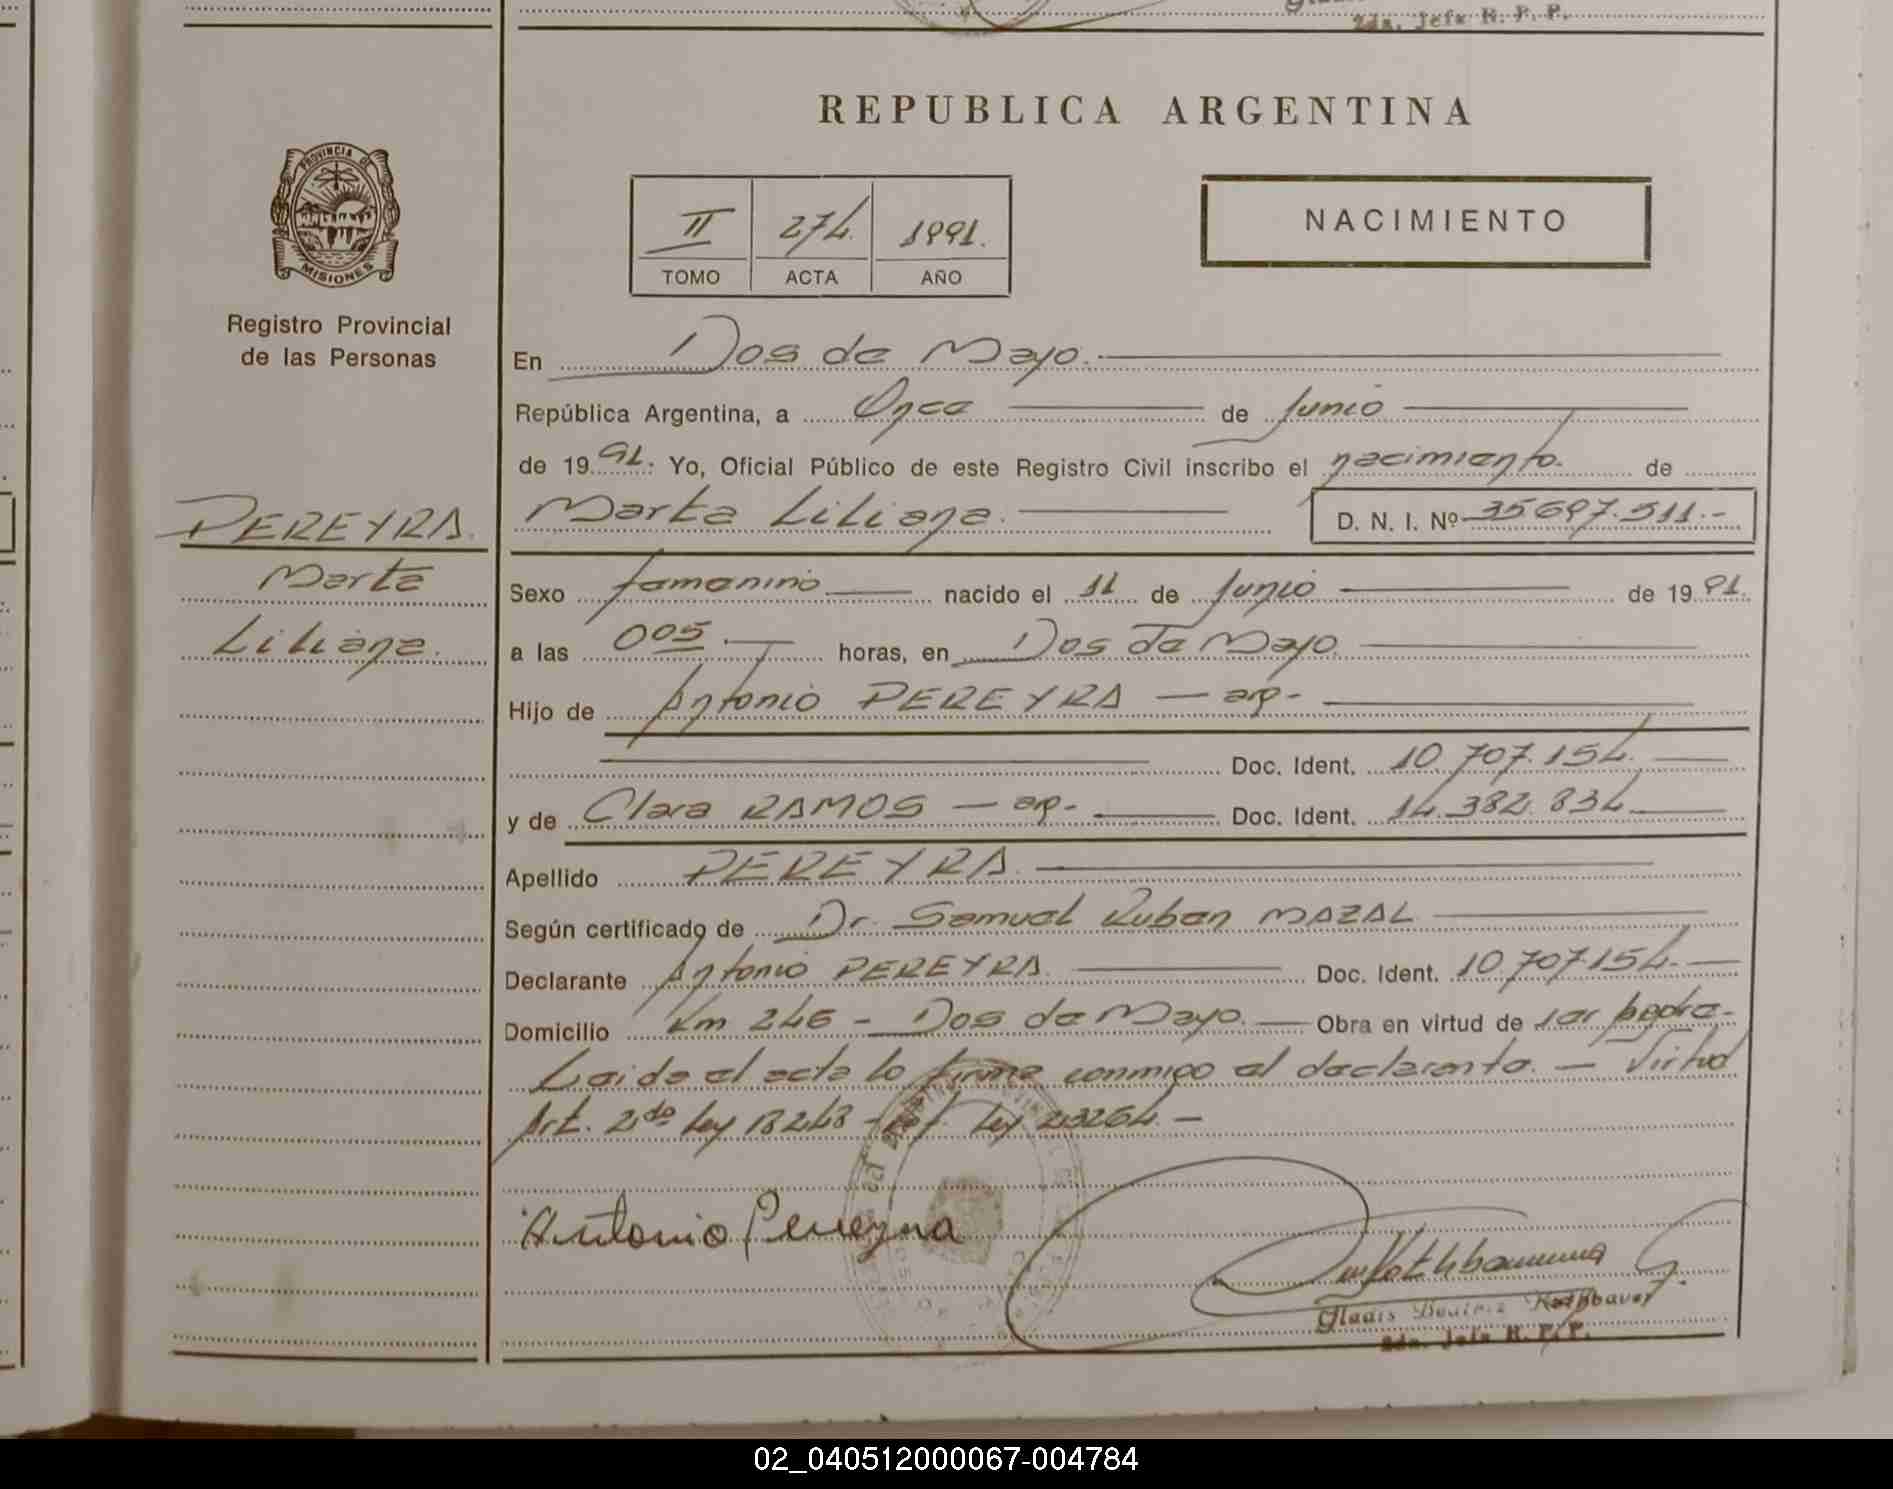 2da. Jefa R. P. P.
REPUBLICA ARGENTINA
PROVINCIA DE
MISIONES
Registro Provincial
de las Personas
II 274. 1991.
TOMO ACTA AÑO
NACIMIENTO
En Dos de Mayo.
República Argentina, a Once de Junio
de 1991. Yo, Oficial Público de este Registro Civil inscribo el nacimiento. de
Marta Liliana. D. N. I. Nº 35697.511.-
PEREYRA.
Marta
Liliana.
Sexo femenino nacido el 11 de Junio de 1991.
a las 005 horas, en Dos de Mayo.
Hijo de Antonio PEREYRA — arg-
Doc. Ident. 10.707.154.
y de Clara RAMOS — arg- Doc. Ident. 14.382.834
Apellido PEREYRA.
Según certificado de Dr. Samuel Ruben MAZAL
Declarante Antonio PEREYRA. Doc. Ident. 10707154.
Domicilio Km 246 - Dos de Mayo. Obra en virtud de ser padre-
Leida el acta lo firma conmigo el declarante. — Virtud
Art. 2do Ley 18248 - Ley 23264.-
Antonio Pereyra
Gladis Beatriz Rothbauer
2da. Jefa R. P. P.
02_040512000067-004784